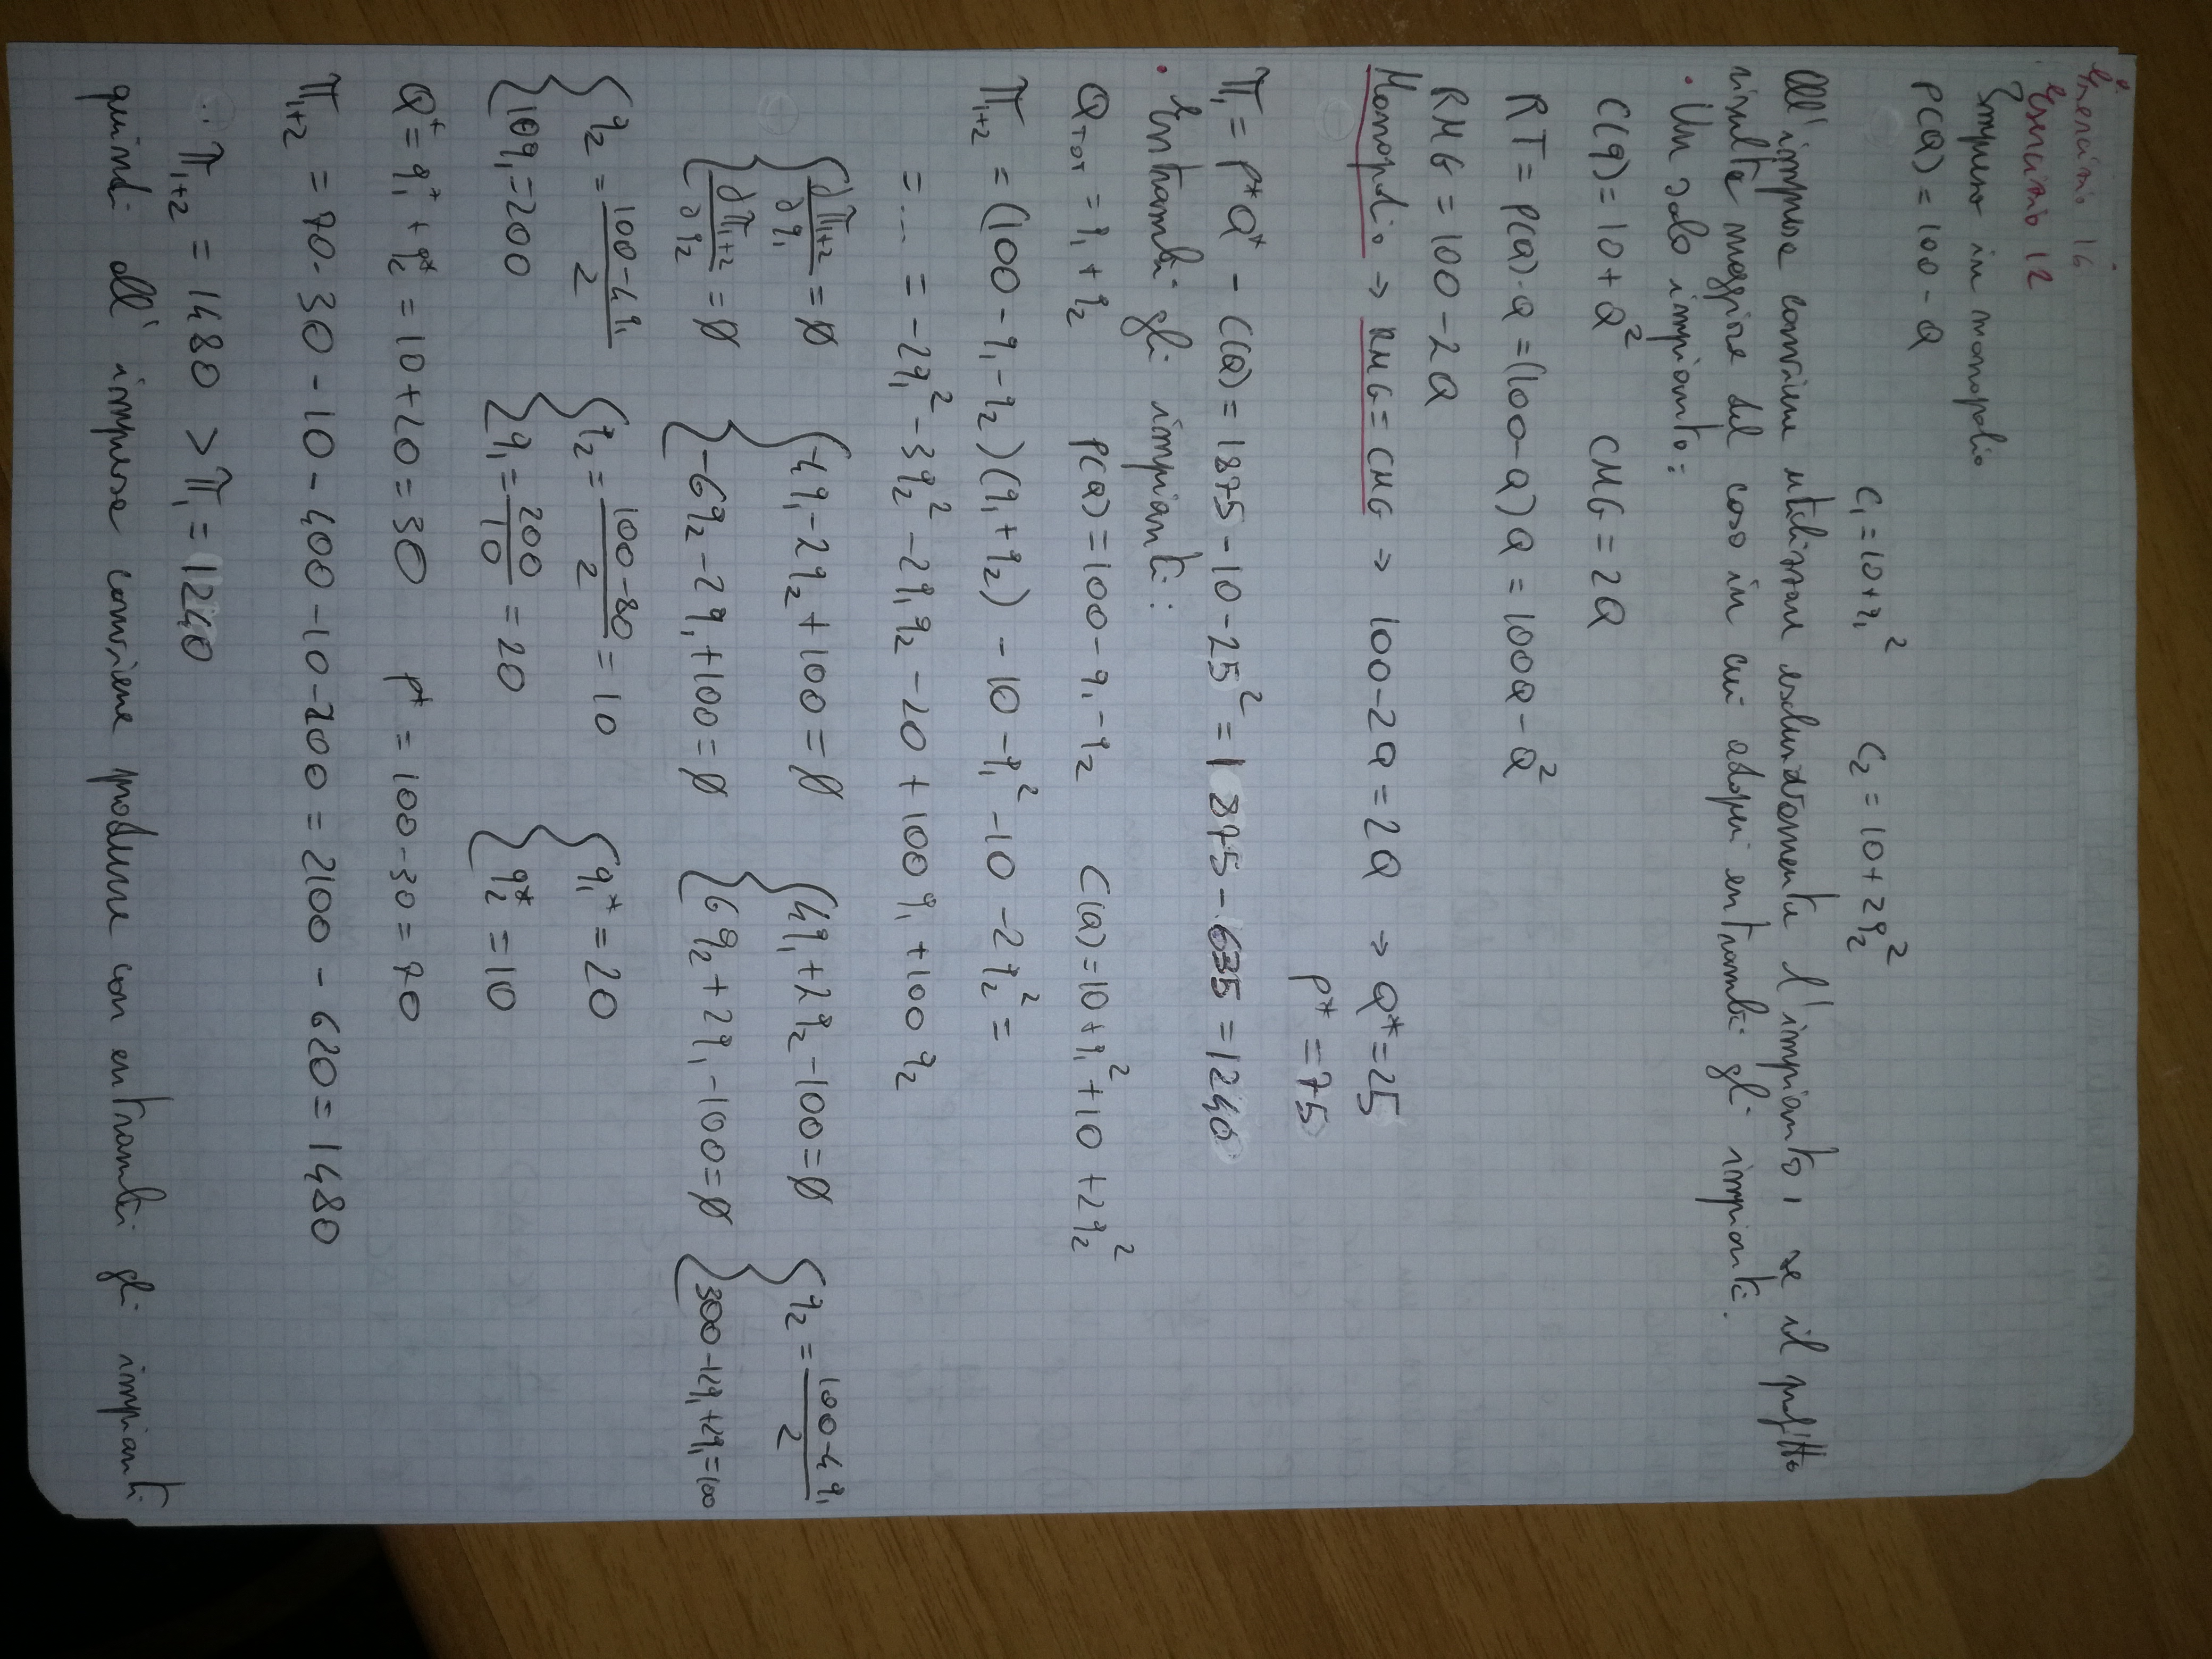 Esercizio 16
Esercizio 12
Impresa in monopolio
P(Q) = 100 - Q
C₁ = 10 + q₁² C₂ = 10 + 2q₂²
All'impresa conviene utilizzare esclusivamente l'impianto 1 se il profitto
risulta maggiore del caso in cui adoperi entrambi gli impianti.
• Un solo impianto:
C(q) = 10 + Q² CMG = 2Q
RT = P(Q)·Q = (100-Q)Q = 100Q - Q²
RMG = 100 - 2Q
Monopolio → RMG = CMG → 100 - 2Q = 2Q → Q* = 25
P* = 75
π₁ = P*Q* - C(Q) = 1875 - 10 - 25² = 1875 - 635 = 1240
• Entrambi gli impianti:
Q_TOT = q₁ + q₂ P(Q) = 100 - q₁ - q₂ C(Q) = 10 + q₁² + 10 + 2q₂²
π₁₊₂ = (100 - q₁ - q₂)(q₁ + q₂) - 10 - q₁² - 10 - 2q₂² =
= ... = -2q₁² - 3q₂² - 2q₁q₂ - 20 + 100q₁ + 100q₂
{ ∂π₁₊₂/∂q₁ = ∅ { -4q₁ - 2q₂ + 100 = ∅ { 4q₁ + 2q₂ - 100 = ∅ { q₂ = (100 - 4q₁)/2
{ ∂π₁₊₂/∂q₂ = ∅ { -6q₂ - 2q₁ + 100 = ∅ { 6q₂ + 2q₁ - 100 = ∅ { 300 - 12q₁ + 2q₁ = 100
{ q₂ = (100 - 4q₁)/2 { q₂ = (100 - 80)/2 = 10 { q₁* = 20
{ 10q₁ = 200 { q₁ = 200/10 = 20 { q₂* = 10
Q* = q₁* + q₂* = 10 + 20 = 30 P* = 100 - 30 = 70
π₁₊₂ = 70·30 - 10 - 400 - 10 - 200 = 2100 - 620 = 1480
π₁₊₂ = 1480 > π₁ = 1240
quindi all'impresa conviene produrre con entrambi gli impianti